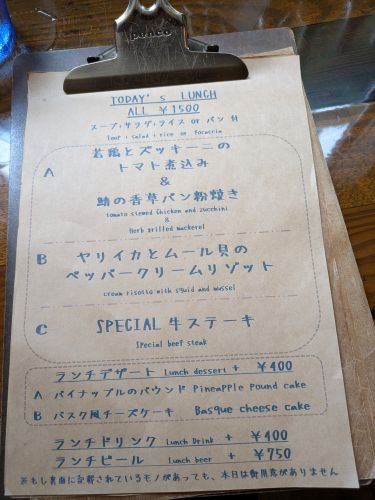 penco
TODAY's LUNCH
ALL ¥1500
スープ+サラダ+ライス or パン 付
Soup + salad + rice or focaccia
A
若鶏とズッキーニの
トマト煮込み
&
鯖の香草パン粉焼き
tomato stewed chicken and zucchini
&
Herb grilled mackerel
B
ヤリイカとムール貝の
ペッパークリームリゾット
cream risotto with squid and mussel
C SPECIAL 牛ステーキ
Special beef steak
ランチデザート Lunch dessert + ¥400
A パイナップルのパウンド Pineapple Pound cake
B バスク風チーズケーキ Basque cheese cake
ランチドリンク Lunch Drink + ¥400
ランチビール Lunch beer + ¥750
※もし裏面に記載されているモノがあっても、本日は御用意がありません